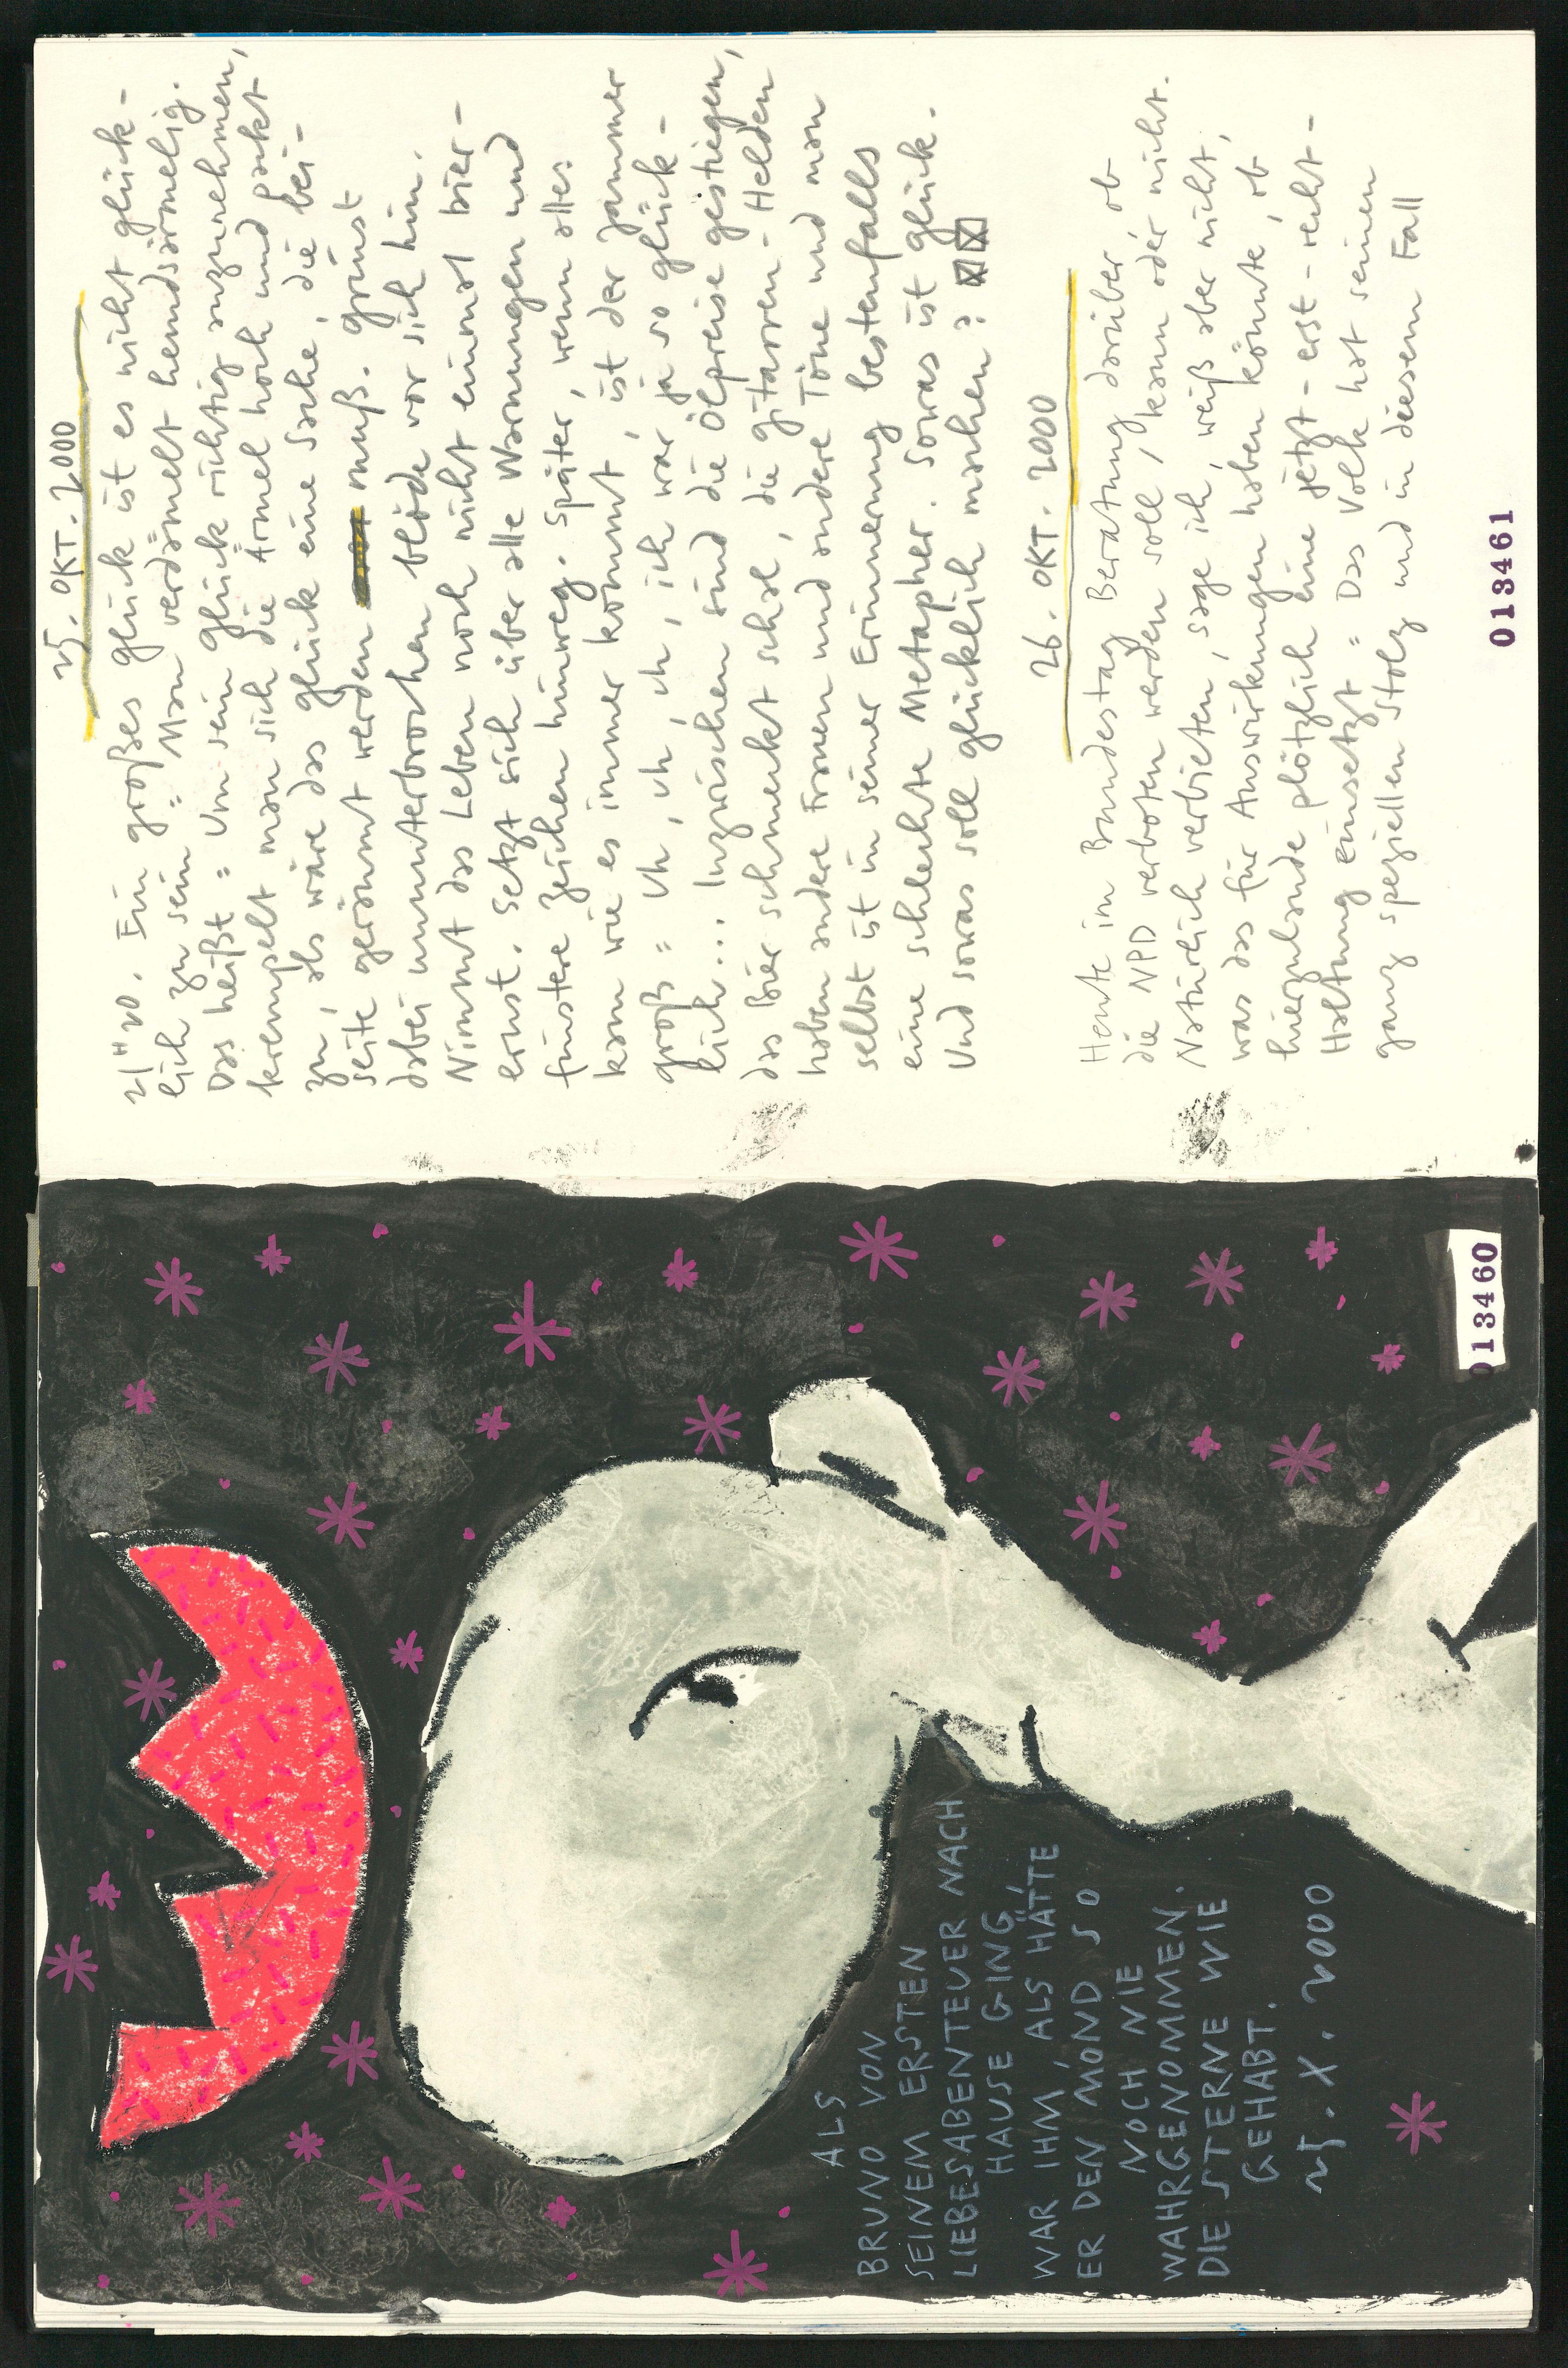 ALS
BRUNO VON
SEINEM ERSTEN
LIEBESABENTEUER NACH
HAUSE GING,
WAR IHM, ALS HÄTTE
ER DEN MOND SO
NOCH NIE
WAHRGENOMMEN.
DIE STERNE WIE
GEHABT.
25. X. 2000
013460
25. OKT. 2000
21"20. Ein großes Glück ist es nicht glück-
lich zu sein = Man verdämelt hemdsärmelig.
Das heißt = Um sein Glück richtig anzunehmen,
krempelt man sich die Ärmel hoch und packt
zu, als wäre das Glück eine Sache, die bei-
seite geräumt werden muß. Grinst
dabei ununterbrochen blöde vor sich hin.
Nimmt das Leben noch nicht einmal bier-
ernst. Setzt sich über alle Warnungen und
finstere Zeichen hinweg. Später, wenn alles
kam wie es immer kommt, ist der Jammer
groß = Ich, ich, ich, ich war ja so glück-
lich... Inzwischen sind die Ölpreise gestiegen,
das Bier schmeckt schal, die Gitarren-Helden
haben andere Frauen und andere Töne und man
selbst ist in seiner Erinnerung bestenfalls
eine schlechte Metapher. Sowas ist Glück.
Und sowas soll glücklich machen?
26. OKT. 2000
Heute im Bundestag Beratung darüber, ob
die NPD verboten werden soll, kann oder nicht.
Natürlich verbieten, sage ich, weiß aber nicht,
was das für Auswirkungen haben könnte, ob
hierzulande plötzlich eine jetzt-erst-recht-
Haltung einsetzt = Das Volk hat seinen
ganz speziellen Stolz und in diesem Fall
013461